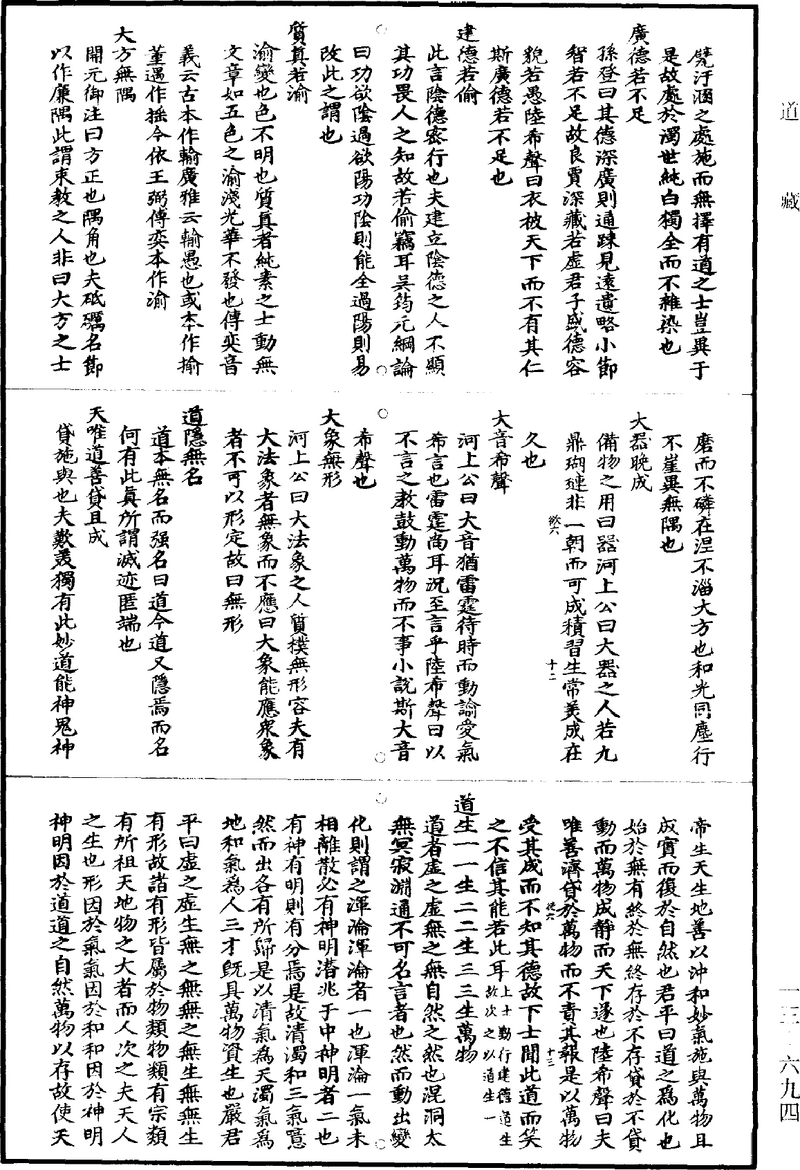 道藏
一三·六九四
凳汙涵之處施而無擇有道之士豈異于
是故處於濁世純白獨全而不雜染也
廣德若不足
孫登曰其德深廣則通踈見遠遺略小節
智若不足故良賈深藏若虛君子盛德容
貌若愚陸希聲曰衣被天下而不有其仁
斯廣德若不足也
建德若偷
此言陰德密行也夫建立陰德之人不顯
其功畏人之知故若偷竊耳吴筠元綱論
曰功欲陰過欲陽功陰則能全過陽則易
改此之謂也
質真若渝
渝變也色不明也質真者純素之士動無
文章如五色之渝淺光華不發也傅奕音
義云古本作輸廣雅云輸愚也或本作揄
董遇作摇今依王弼傅奕本作渝
大方無隅
開元御注曰方正也隅角也夫砥礪名節
以作廉隅此謂束教之人非曰大方之士
磨而不磷在涅不淄大方也和光同塵行
不崖異無隅也
大器晚成
備物之用曰器河上公曰大器之人若九
鼎瑚璉非一朝而可成積習生常美成在
久也
大音希聲
河上公曰大音猶雷霆待時而動諭愛氣
希言也雷霆尚耳況至言乎陸希聲曰以
不言之教鼓動萬物而不事小說斯大音
希聲也
大象無形
河上公曰大法象之人質樸無形容夫有
大法象者無象而不應曰大象能應衆象
者不可以形定故曰無形
道隱無名
道本無名而强名曰道今道又隱焉而名
何有此眞所謂滅迹匿端也
天唯道善貸且成
貸施與也夫歎羨獨有此妙道能神鬼神
帝生天生地善以沖和妙氣施與萬物且
成實而復於自然也君平曰道之爲化也
始於無有終於無終存於不存貸於不貸
動而萬物成靜而天下遂也陸希聲曰夫
唯善濟貸於萬物而不責其報是以萬物
受其成而不知其德故下士聞此道而笑
之不信其能若此耳上士勤行建德道生故次之以道生一
道生一一生二二生三三生萬物
道者虛之虛無之無自然之然也混洞太
無冥寂淵通不可名言者也然而動出變
化則謂之渾淪渾淪者一也渾淪一氣未
相離散必有神明潛兆于中神明者二也
有神有明則有分焉是故清濁和三氣噫
然而出各有所歸是以清氣爲天濁氣爲
地和氣爲人三才旣具萬物資生也嚴君
平曰虛之虛生無之無無之無生無無生
有形故諸有形皆屬於物類物類有宗類
有所祖天地物之大者而人次之夫天人
之生也形因於氣氣因於和和因於神明
神明因於道道之自然萬物以存故使天